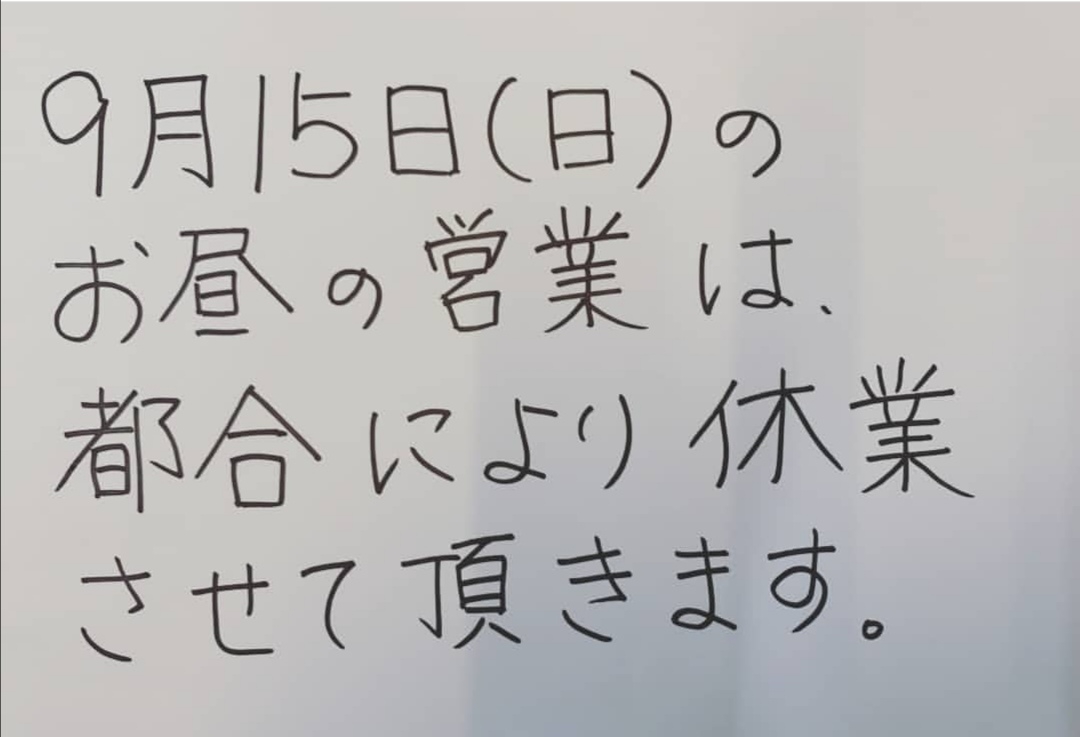 9月15日(日)の
お昼の営業は、
都合により休業
させて頂きます。